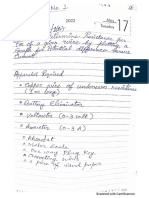 No. 1
2022
May
17
Tuesday
To determine Resistance per
cm of a given wire by plotting a
Graph for Potential Difference Versus
Current
Apparatus Required
Copper piece of unknown resistance
(1m long)
Battery Eliminator
Voltmeter (0-3 volt)
Ammeter (0-3 A)
Rheostat
Metre Scale
One way Plug Key
Connecting Wires
A piece of sand paper
Scanned with CamScanner